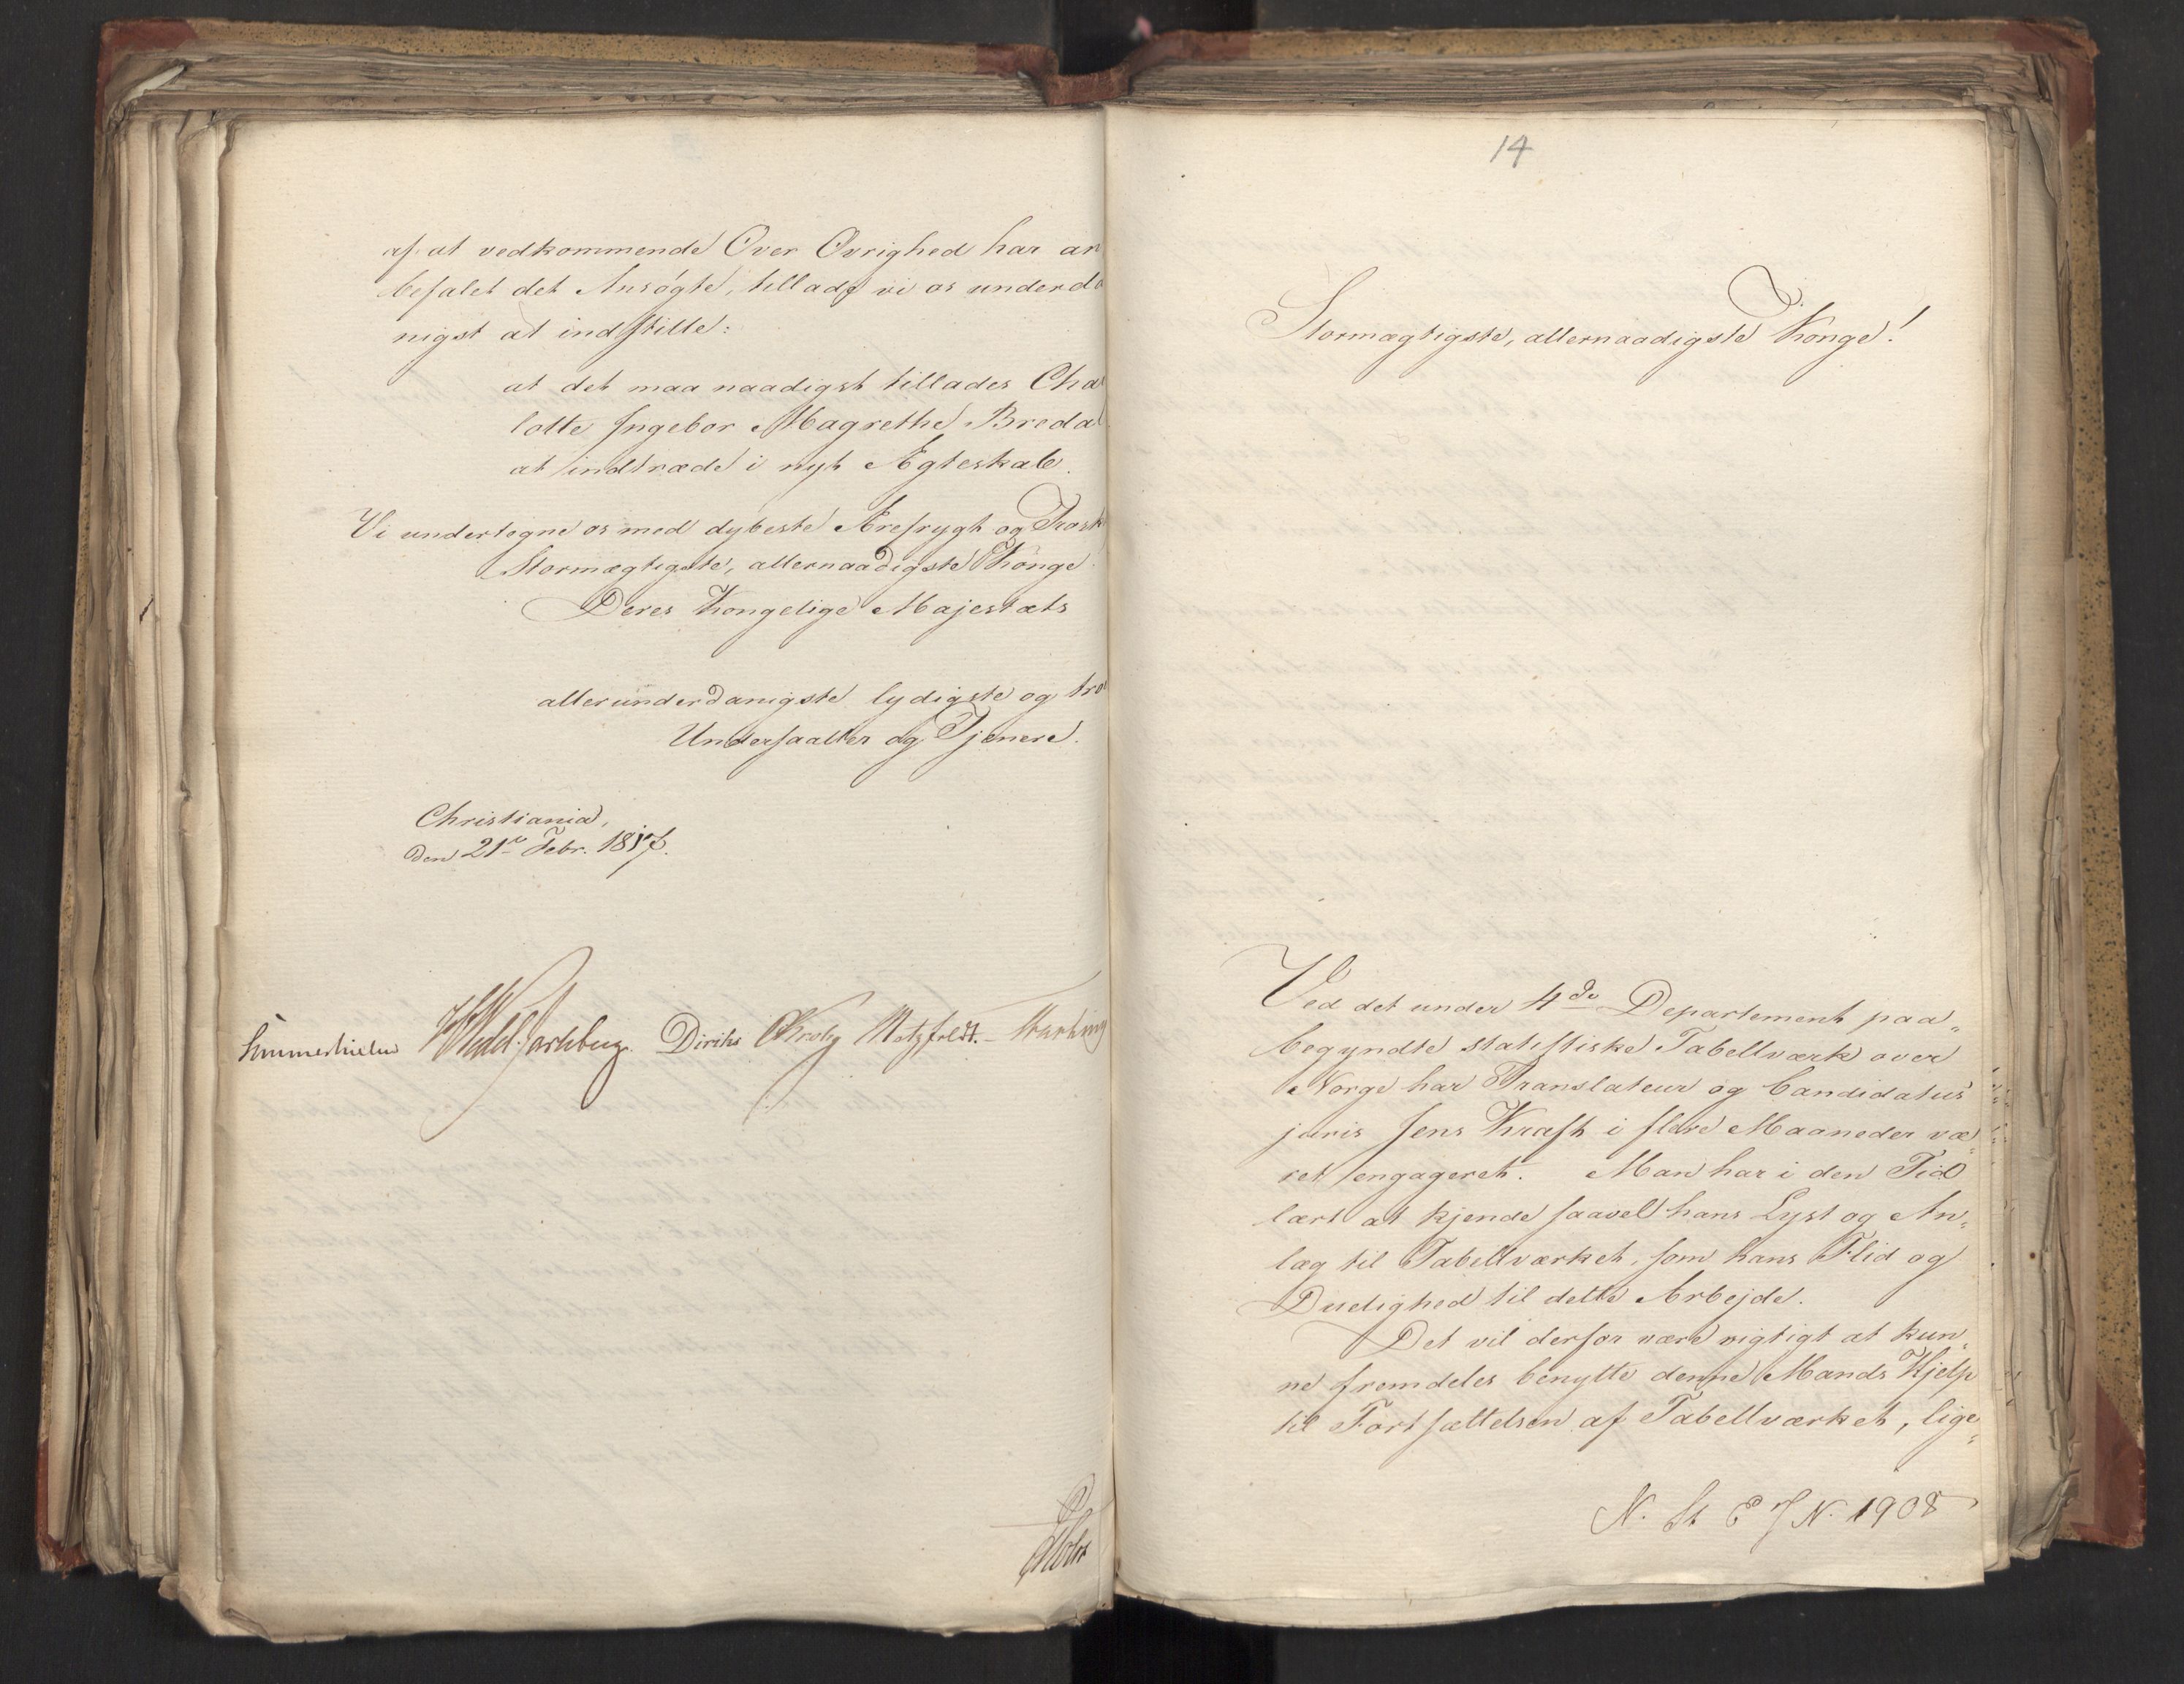 af at vedkommende Over Øvrighed har an
befalet det Ansögte, tillade vi os underda
nigst at indstille:
at det maa naadigst tillades Cha
lotte Ingebor Magrethe Bredal
at indtræde i nyt Ægteskab.
Vi undertegne os med dybeste Ærefrygt og Trosk
Stormægtigste, allernaadigste Konge.
Deres Kongelige Majestæts
allerunderdanigste lydigste og tro
Undersaatter og Tjenere.
Christiania,
den 21de Febr. 1817.
Sommerhielm Wedel-Jarlsberg Diriks Krohg Motzfeldt. Harbing
Holst
14
Stormægtigste, allernaadigste Konge!
Ved det under 4de Departement paa„
begyndte statistiske Tabellværk over
Norge har Translateur og Candidatus
juris Jens Kraft i flere Maaneder væ„
ret engageret. Man har i den Tid
lært at kjende saavel hans Lyst og An„
læg til Tabellværket, som hans Flid og
Duelighed til dette Arbejde.
Det vil derfor være vigtigt at kun„
ne fremdeles benytte denne Mands Hjelp
til Fortsættelsen af Tabellværket, lige„
N. St E J N. 1908